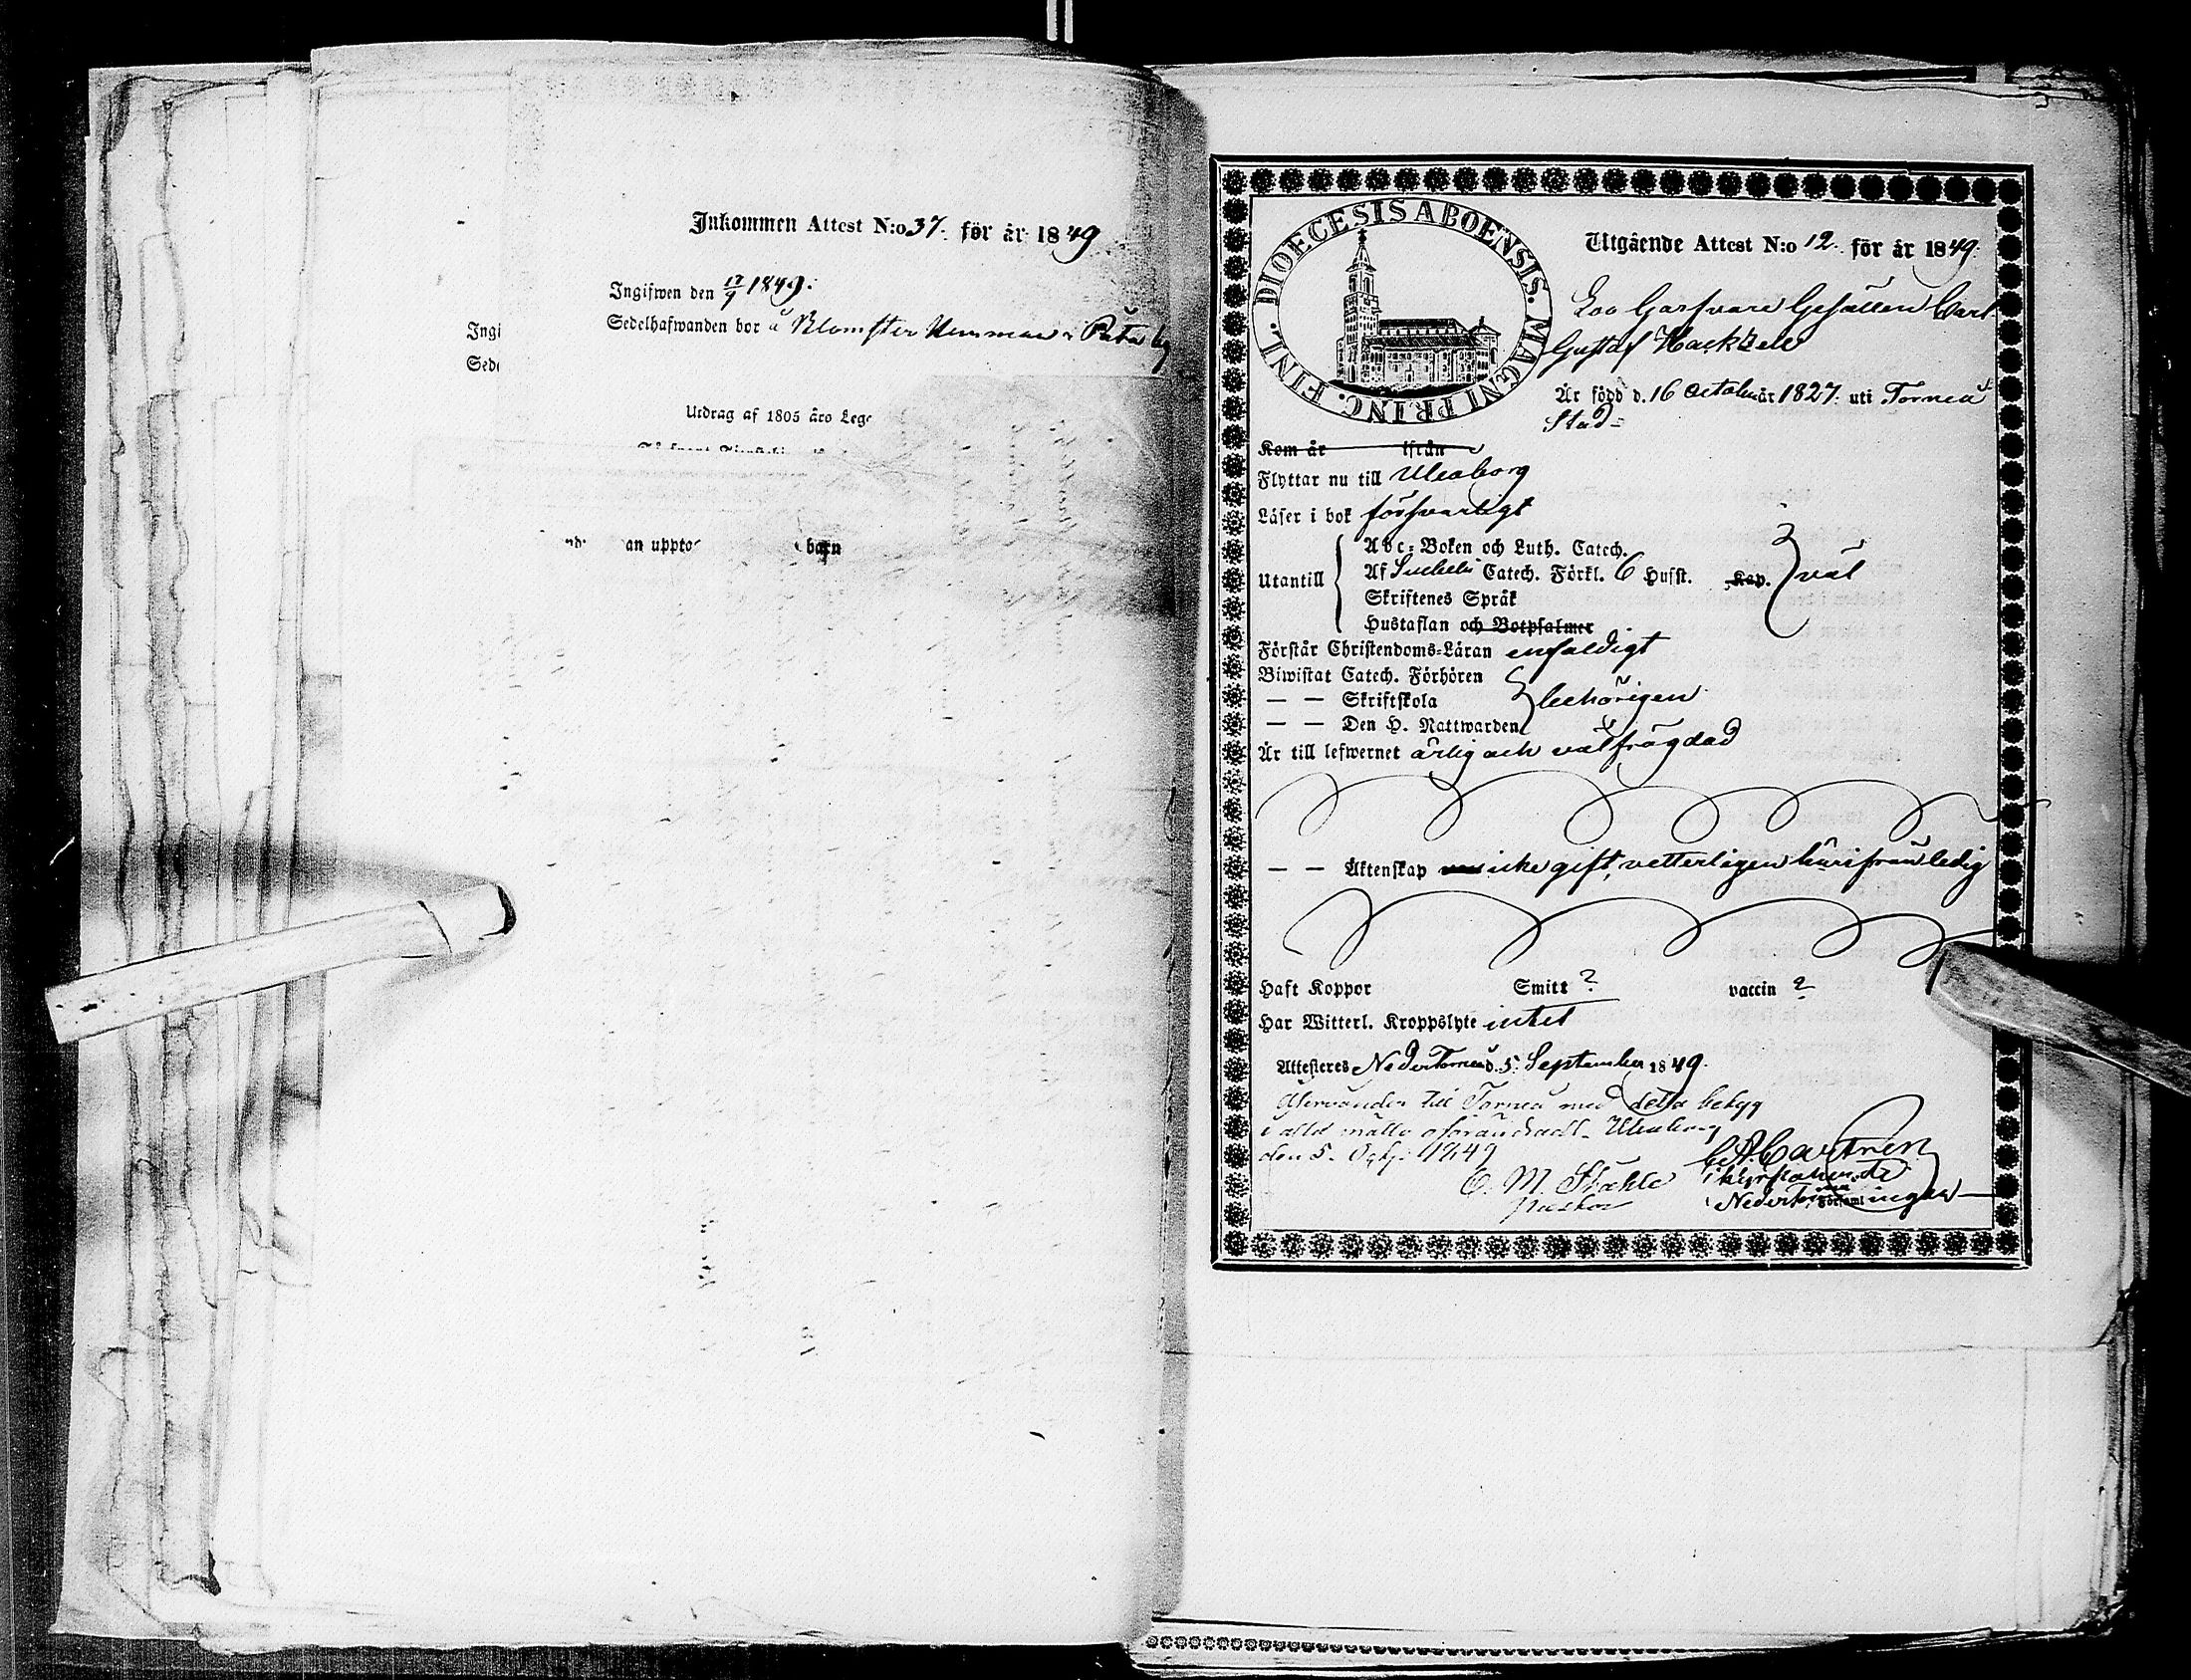 Inkommen Attest N:o 37. för år 1849
Ingifwen den 17/9 1849.
Sedelhafwanden bor å Blomster Hemman i Pata by
Ingi
Sede
Utdrag af 1805 åro Lege
an uppto barn
DIOECESIS ABOENSIS. MAGNI PRINC. FINL.
Utgående Attest N:o 12. för år 1849.
Loo Garfvare Gesällen Carl
Gustaf Hackzell
Är född d. 16 October år 1827. uti Torneå
Stad
Kom år ifrån
Flyttar nu till Uleaborg
Läser i bok försvarligt
Utantill
Abc-Boken och Luth. Catech.
Af Svebelii Catech. Förkl. 6 Hufst. Kap. väl
Skriftenes Språk
Hustaflan och Botpsalmer
Förstår Christendoms-Läran enfaldigt
Biwistat Catech. Förhören
— — Skriftskola behörigen
— — Den H. Nattwarden
Är till lefwernet ärlig och välfrägdad
— — Äktenskap icke gift, vetterligen härifrån ledig
Haft Koppor Smitt ? vaccin ?
Har Witterl. Kroppslyte intet
Attesteres NederTorneå d. 5. September 1849.
Återvänder till Torneå med detta betyg
i allt måtto oförändradt. Uleaborg
den 5. 1849
C. M. Ståhle
C. A. Castrén
Neder